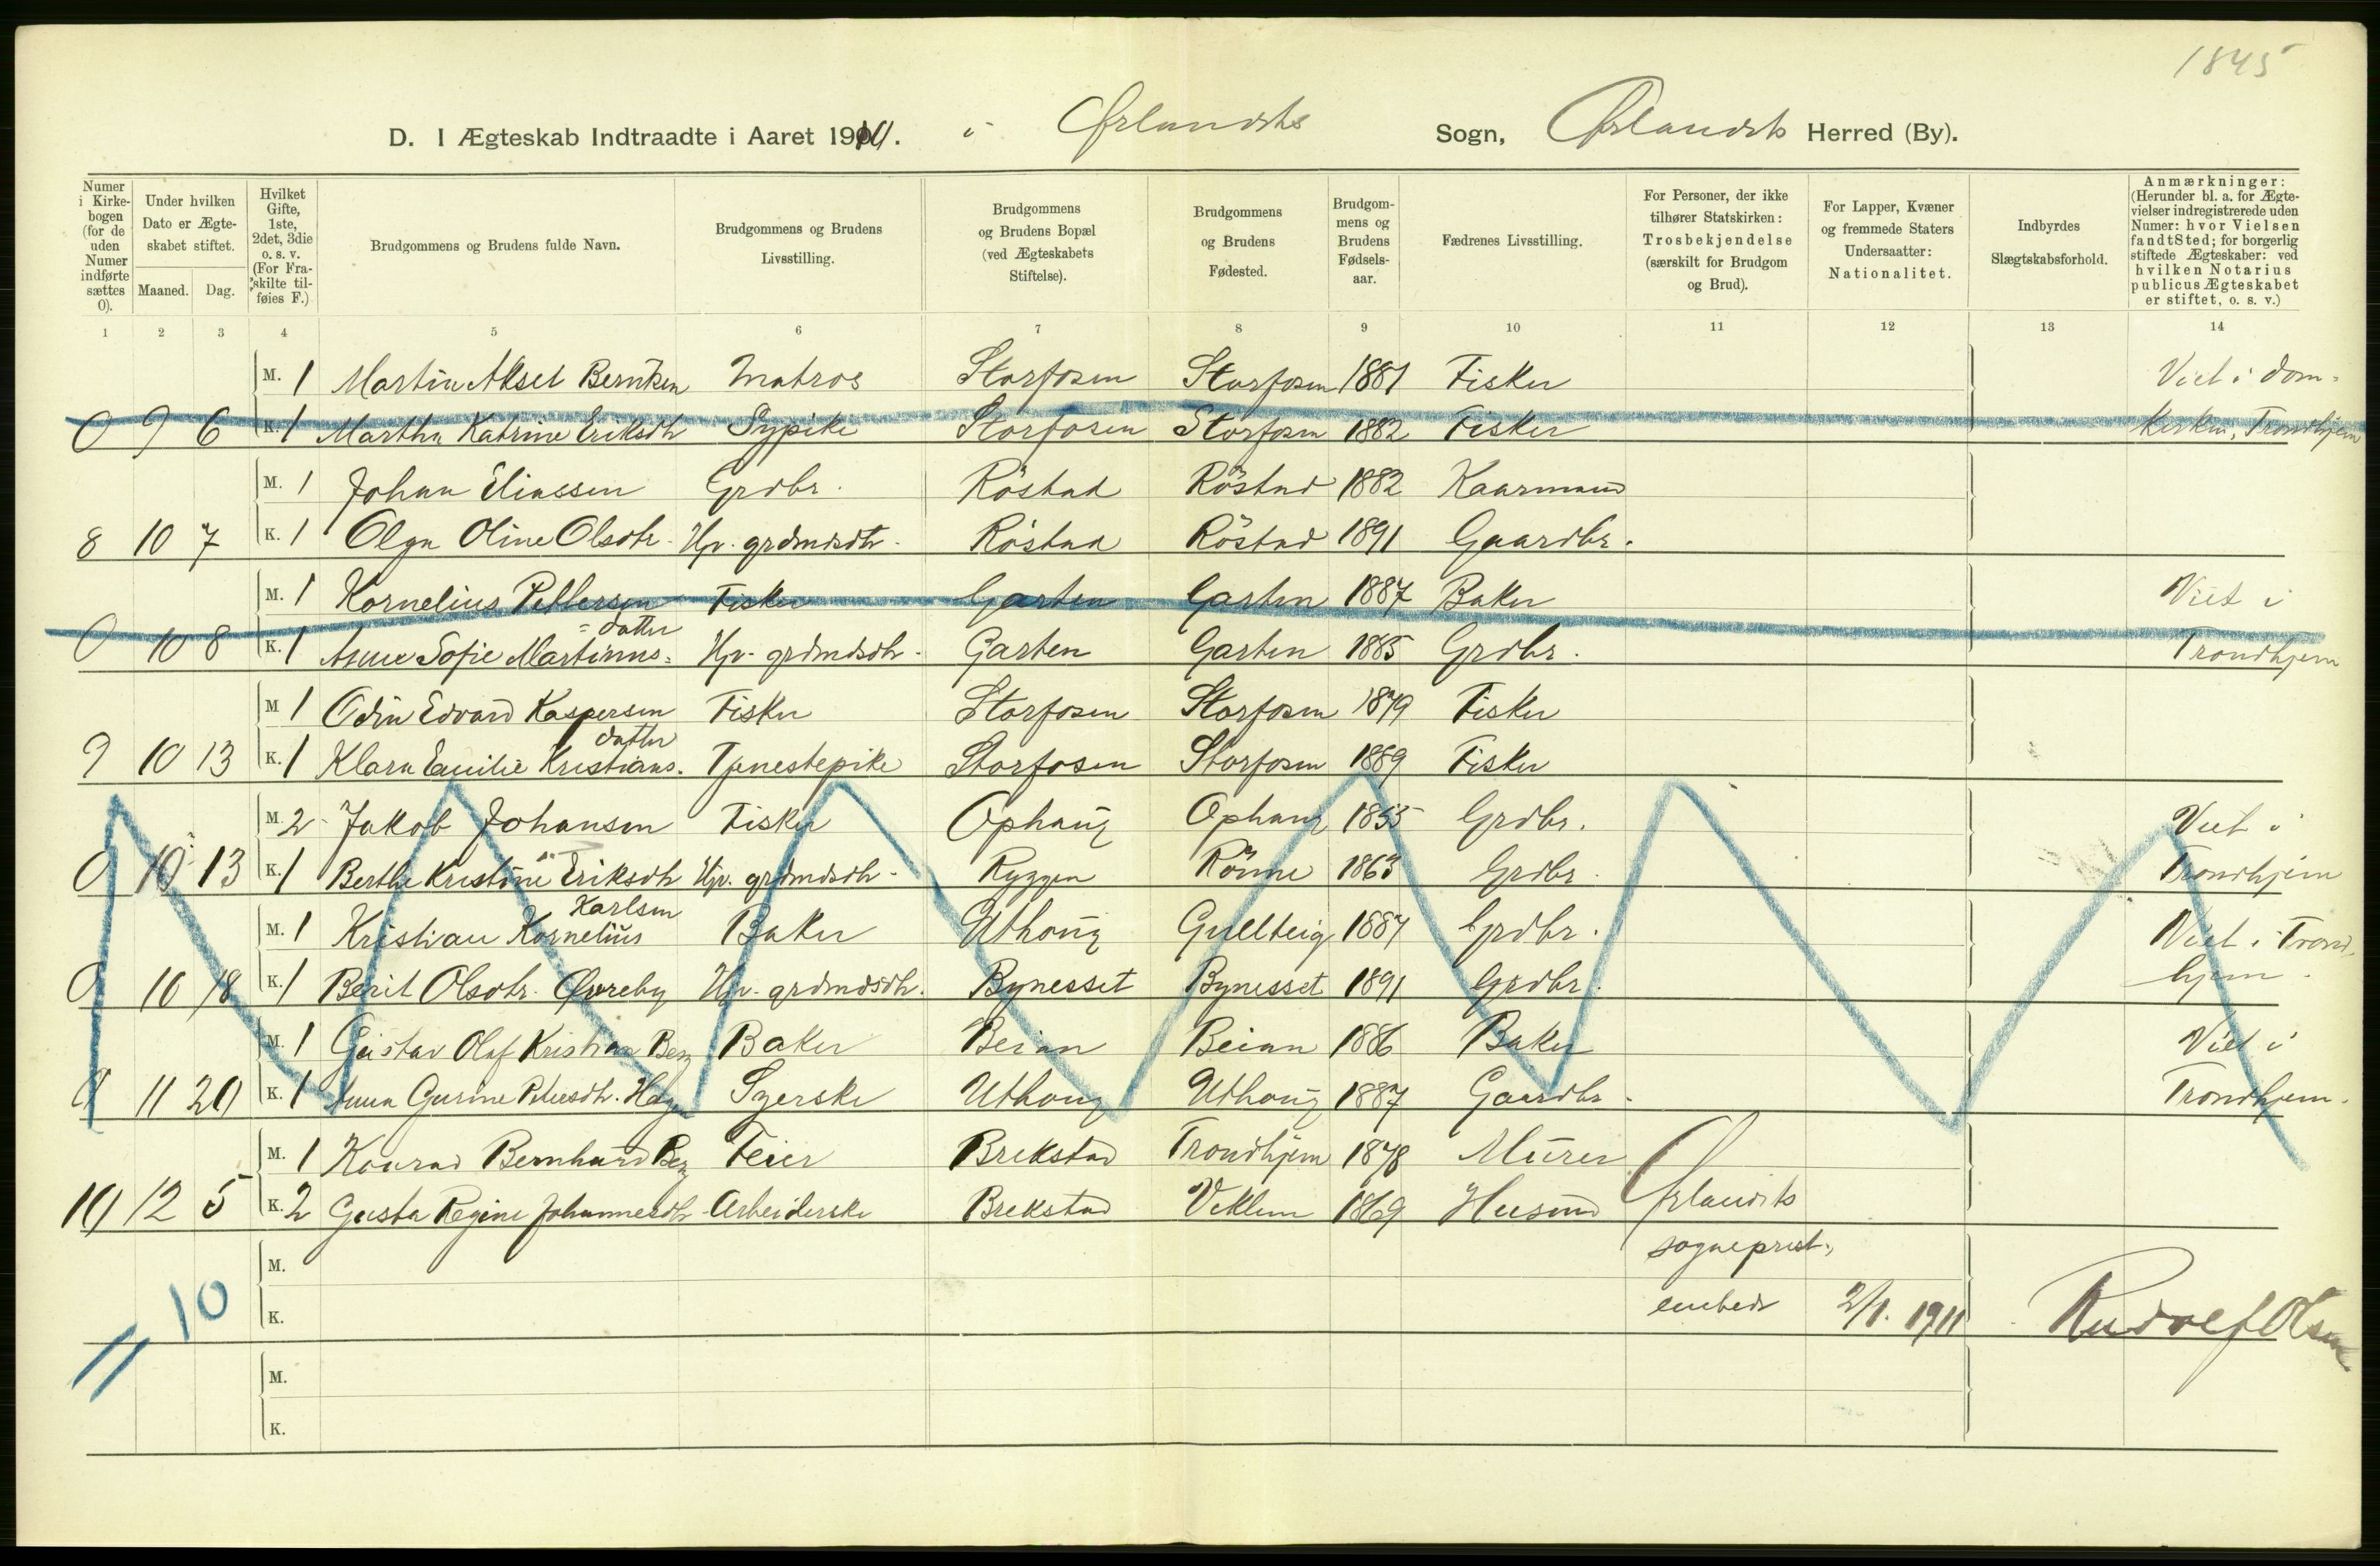 1845
D. I Ægteskab Indtraadte i Aaret 1910. i Ørlandets Sogn, Ørlandets Herred (By).
Numer i Kirkebogen (for de uden Numer indførte sættes 0). Under hvilken Dato er Ægteskabet stiftet. Maaned. Dag. Hvilket Gifte, 1ste, 2det, 3die o. s. v. (For Fraskilte tilføies F.) Brudgommens og Brudens fulde Navn. Brudgommens og Brudens Livsstilling. Brudgommens og Brudens Bopæl (ved Ægteskabets Stiftelse). Brudgommens og Brudens Fødested. Brudgommens og Brudens Fødselsaar. Fædrenes Livsstilling. For Personer, der ikke tilhører Statskirken: Trosbekjendelse (særskilt for Brudgom og Brud). For Lapper, Kvæner og fremmede Staters Undersaatter: Nationalitet. Indbyrdes Slægtskabsforhold. Anmærkninger: (Herunder bl. a. for Ægtevielser indregistrerede uden Numer: hvor Vielsen fandt Sted; for borgerlig stiftede Ægteskaber: ved hvilken Notarius publicus Ægteskabet er stiftet, o. s. v.)
1 2 3 4 5 6 7 8 9 10 11 12 13 14
M. 1 Martin Aksel Berntsen Matros Storfosen Storfosen 1881 Fisker Viet i Dom-
0 9 6 K. 1 Martha Katrine Eriksdtr Sypike Storfosen Storfosen 1882 Fisker kirken, Trondhjem
M. 1 Johan Eliassen Grdbr. Röstad Röstad 1882 Kaarmand
8 10 7 K. 1 Olga Oline Olsdtr. Hjv. grdmdsdtr. Röstad Röstad 1891 Gaardbr.
M. 1 Kornelius Pettersen Fisker Garten Garten 1887 Baker Viet i
= datter
0 10 8 K. 1 Anne Sofie Martinus= Hjv. grdmdsdtr. Garten Garten 1885 Grdbr. Trondhjem
M 1 Odin Edvard Kaspersen Fisker Storfosen Storfosen 1879 Fisker
datter
9 10 13 K. 1 Klara Emilie Kristians. Tjenestepike Storfosen Storfosen 1889 Fisker
M. 2 Jakob Johansen Fisker Ophaug Ophaug 1855 Grdbr. Viet i
0 10 13 K. 1 Berthe Kristine Eriksdtr Hjv. grdmdsdtr. Ryggen Rönne 1863 Grdbr. Trondhjem
Karlsen
M. 1 Kristian Kornelius Baker Uthaug Gullteig 1887 Grdbr. Viet i Trond
0 10 18 K. 1 Berit Olsdtr. Øvreby Hjv. grdmdsdtr. Bynesset Bynesset 1891 Grdbr. hjem.
M. 1 Gustav Olaf Kristian Berg Baker Beian Beian 1886 Baker Viet i
0 11 20 K. 1 Anna Gurine Petersdtr. Hagen Syerske Uthaug Uthaug 1887 Gaardbr. Trondhjem.
M. 1 Konrad Bernhard Berg Feier Brekstad Trondhjem 1878 Murer
10 12 5 K. 2 Gusta Regine Johannesdtr. Arbeiderske Brekstad Veklem 1869 Husmd Ørlandets
M. sogneprest-
10
K. embede 2/1. 1911 Rudolf Olsen
M.
K.